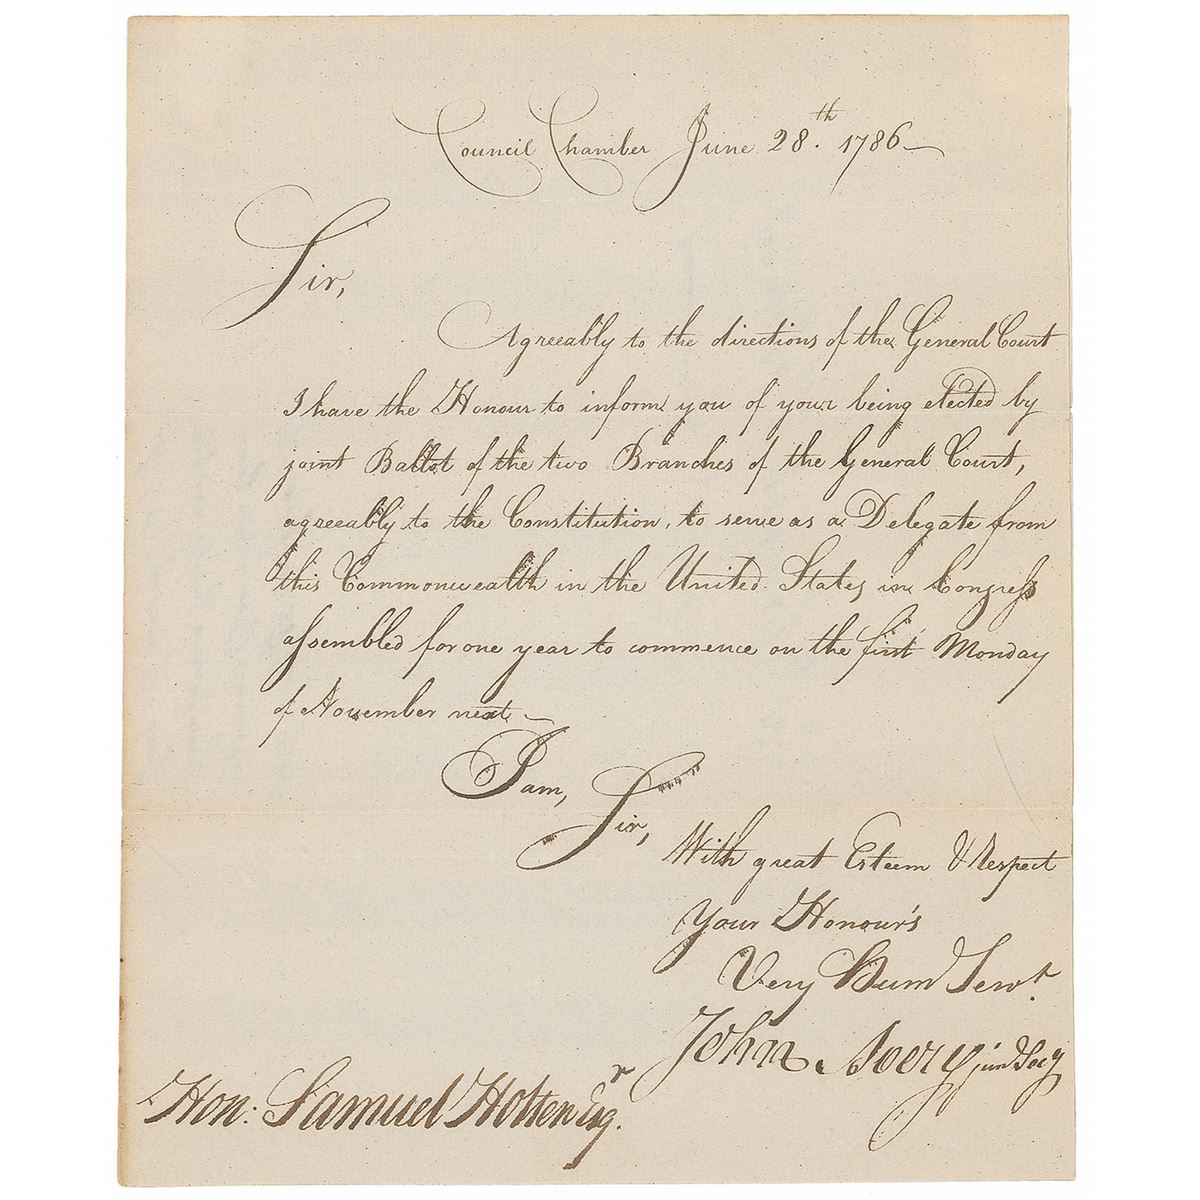 Council Chamber June 28.th 1786
Sir,
Agreeably to the directions of the General Court
I have the Honour to inform you of your being elected by
joint Ballot of the two Branches of the General Court,
agreeably to the Constitution, to serve as a Delegate from
this Commonwealth in the United States in Congress
assembled for one year to commence on the first Monday
of November next
I am,
Sir,
With great Esteem & Respect
Your Honour's
Very Hum Servt.
John Avery jun Secy
Hon: Samuel Holten Esqr.